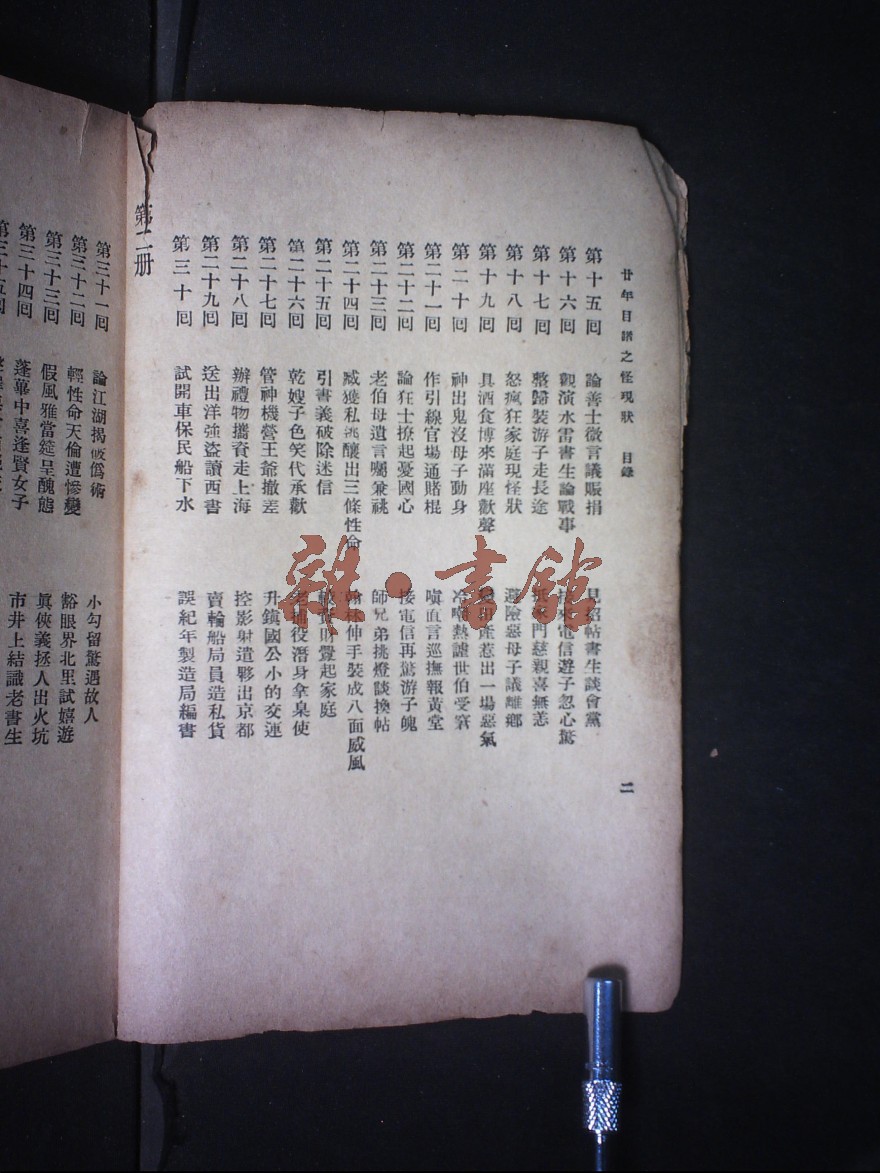 廿年目睹之怪現狀 目錄 二
第十五回 論善士微言議賬捐 見招帖書生談會黨
第十六回 觀演水雷書生論戰事 來電信遊子忽心驚
第十七回 整歸裝游子走長途 門慈親喜無恙
第十八回 怒瘋狂家庭現怪狀 避險惡母子議離鄉
第十九回 具酒食博來滿座歡聲 產惹出一場惡氣
第二十回 神出鬼沒母子動身 冷嘲熱謔世伯受窘
第二十一回 作引線官場通賭棍 嗔直言巡撫報黃堂
第二十二回 論狂士撩起憂國心 接電信再驚游子魄
第二十三回 老伯母遺言囑兼祧 師兄弟挑燈談換帖
第二十四回 臧獲私逃釀出三條性命 翰林伸手裝成八面威風
第二十五回 引書義破除迷信 財釁起家庭
第二十六回 乾嫂子色笑代承歡 老捕役潛身拿臬使
第二十七回 管神機營王爺撤差 升鎮國公小的交運
第二十八回 辦禮物攜資走上海 控影射遣夥出京都
第二十九回 送出洋強盜讀西書 賣輪船局員造私貨
第三十回 試開車保民船下水 誤紀年製造局編書
第二册
第三十一回 論江湖揭破僞術 小勾留驚遇故人
第三十二回 輕性命天倫遭慘變 豁眼界北里試嬉遊
第三十三回 假風雅當筵呈醜態 眞俠義拯人出火坑
第三十四回 蓬蓽中喜逢賢女子 市井上結識老書生
第三十五回
雜·書館